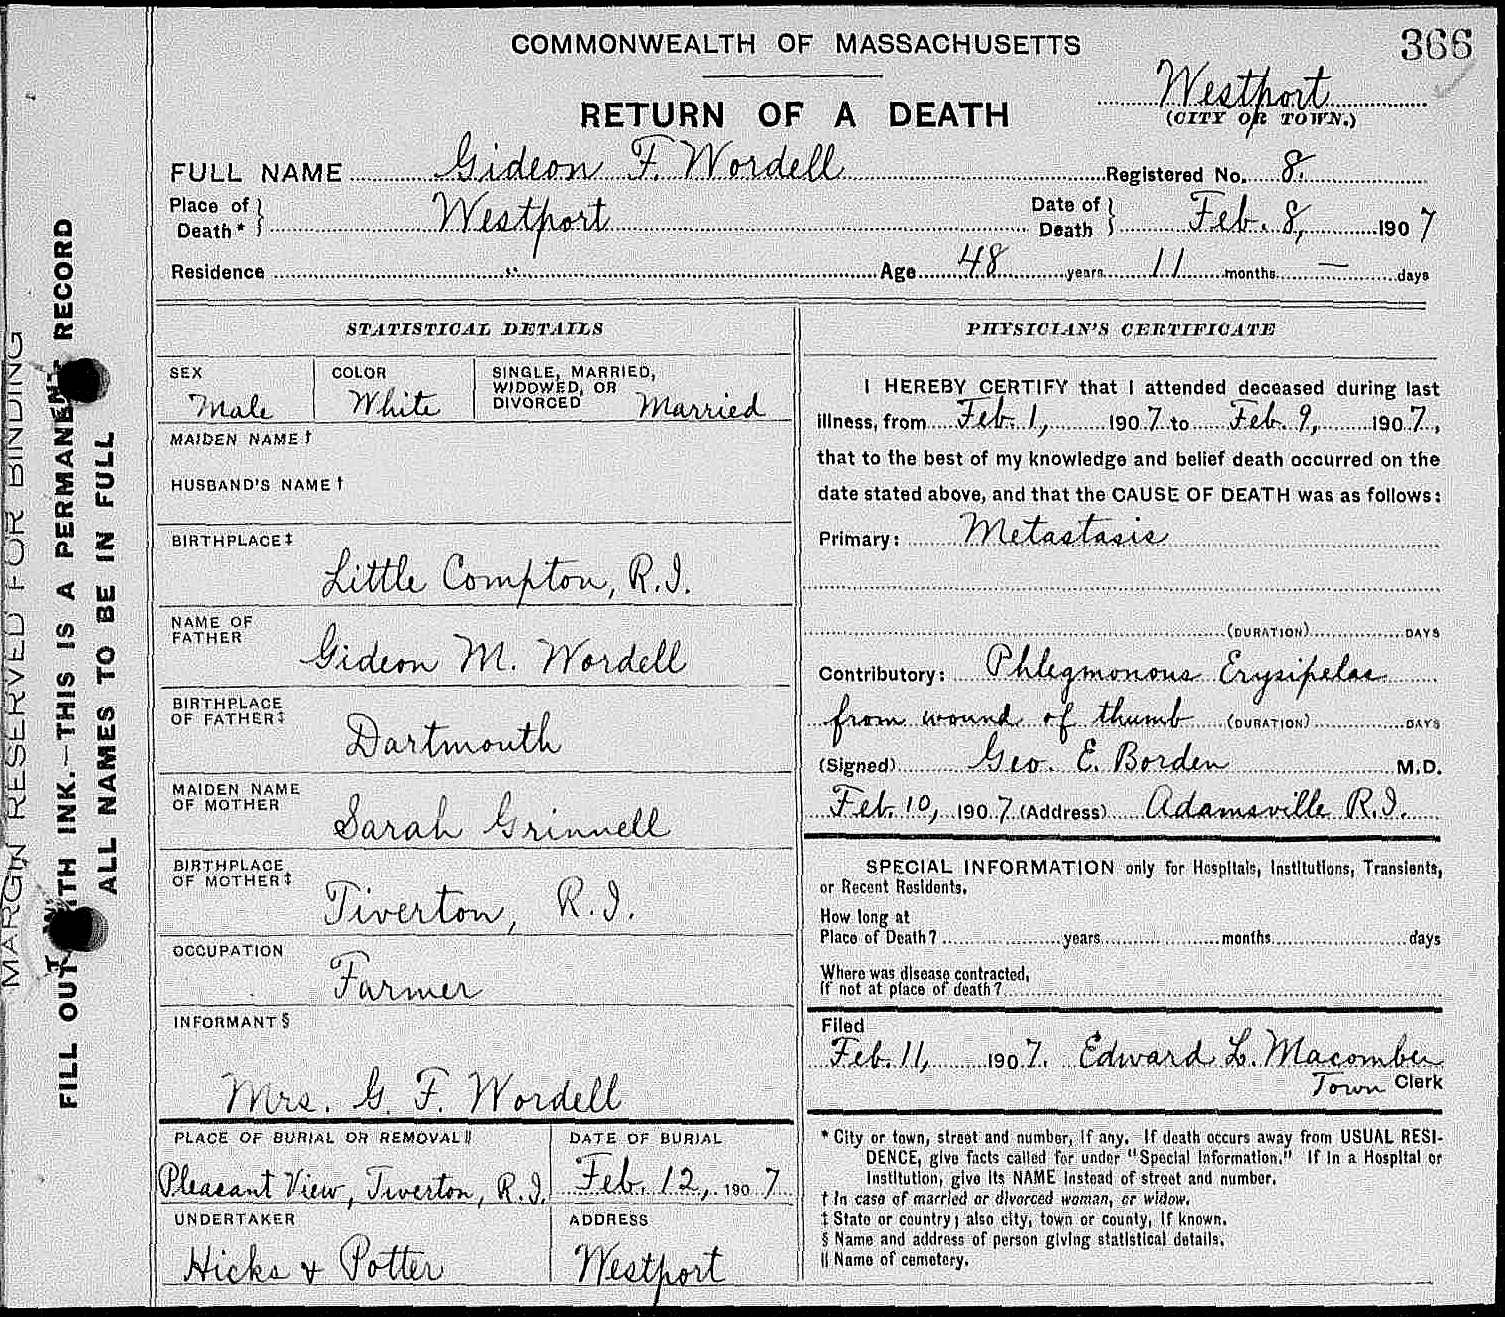 COMMONWEALTH OF MASSACHUSETTS
366
RETURN OF A DEATH
Westport
(CITY OR TOWN.)
FULL NAME Gideon F. Wordell Registered No. 8.
Place of Death* } Westport Date of Death } Feb. 8, 1907
Residence " Age 48 years 11 months — days
STATISTICAL DETAILS
SEX Male
COLOR White
SINGLE, MARRIED, WIDOWED, OR DIVORCED Married
MAIDEN NAME †
HUSBAND'S NAME †
BIRTHPLACE ‡
Little Compton, R.I.
NAME OF FATHER
Gideon M. Wordell
BIRTHPLACE OF FATHER ‡
Dartmouth
MAIDEN NAME OF MOTHER
Sarah Grinnell
BIRTHPLACE OF MOTHER ‡
Tiverton, R.I.
OCCUPATION
Farmer
INFORMANT §
Mrs. G. F. Wordell
PLACE OF BURIAL OR REMOVAL ||
Pleasant View, Tiverton, R.I.
DATE OF BURIAL
Feb. 12, 1907
UNDERTAKER
Hicks & Potter
ADDRESS
Westport
PHYSICIAN'S CERTIFICATE
I HEREBY CERTIFY that I attended deceased during last
illness, from Feb. 1, 1907 to Feb. 9, 1907,
that to the best of my knowledge and belief death occurred on the
date stated above, and that the CAUSE OF DEATH was as follows:
Primary: Metastasis
(DURATION) DAYS
Contributory: Phlegmonous Erysipelas
from wound of thumb (DURATION) DAYS
(Signed) Geo. E. Borden M.D.
Feb. 10, 1907 (Address) Adamsville R.I.
SPECIAL INFORMATION only for Hospitals, Institutions, Transients,
or Recent Residents.
How long at
Place of Death? years months days
Where was disease contracted,
if not at place of death?
Filed
Feb. 11, 1907. Edward L. Macomber
Town Clerk
* City or town, street and number, if any. If death occurs away from USUAL RESI-
DENCE, give facts called for under "Special Information." If in a Hospital or
Institution, give its NAME instead of street and number.
† In case of married or divorced woman, or widow.
‡ State or country; also city, town or county, if known.
§ Name and address of person giving statistical details.
|| Name of cemetery.
MARGIN RESERVED FOR BINDING
FILL OUT WITH INK.—THIS IS A PERMANENT RECORD
ALL NAMES TO BE IN FULL